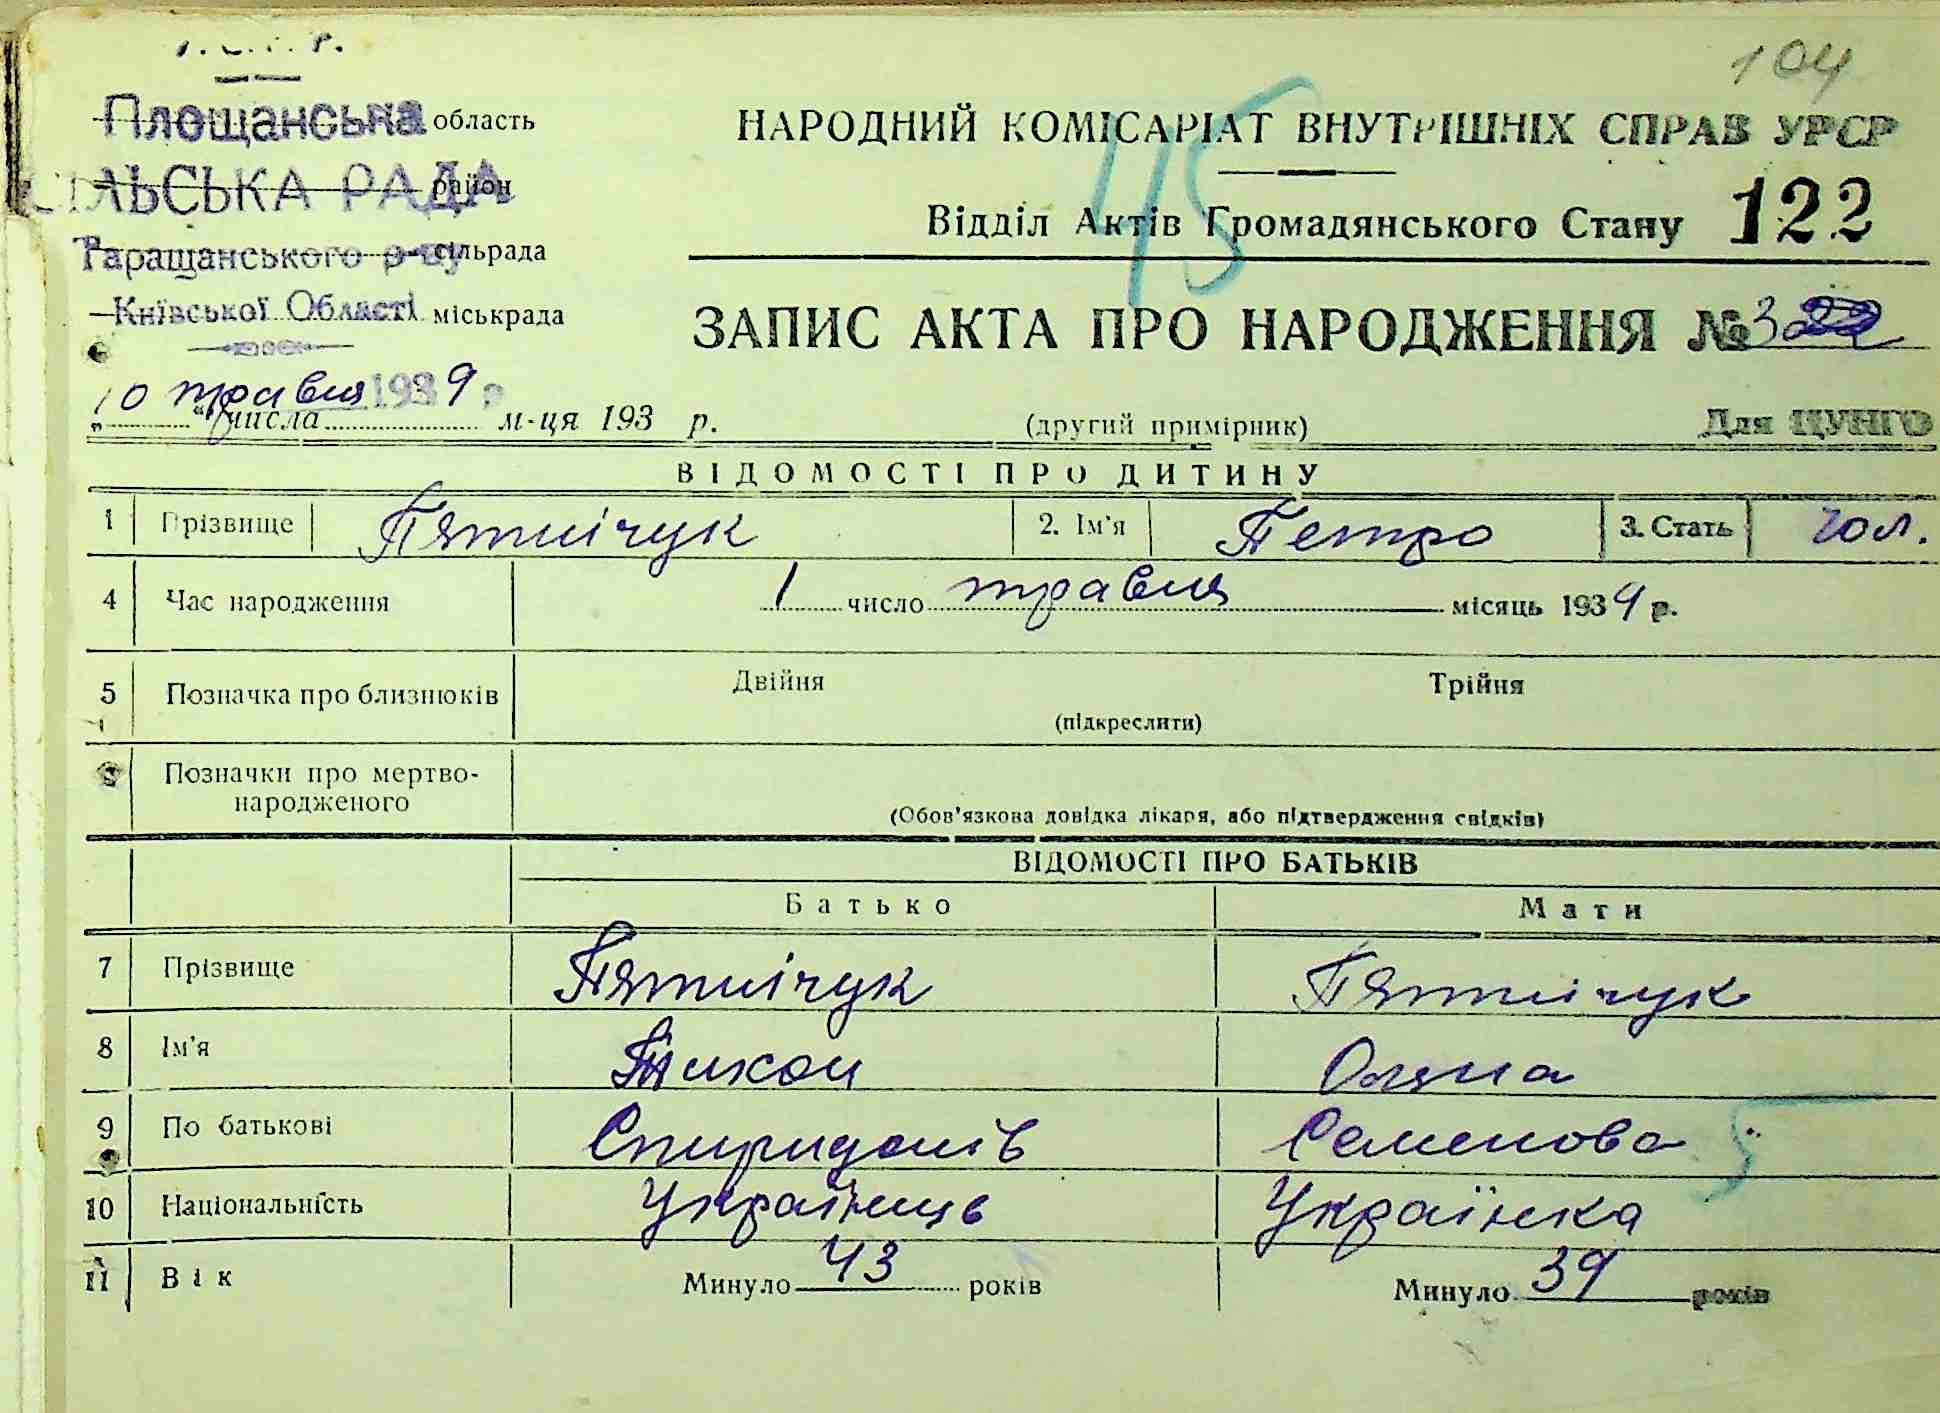 104
Площанська область
СІЛЬСЬКА РАДА район
Таращанського р-ну сільрада
Київської Області міськрада
НАРОДНИЙ КОМІСАРІАТ ВНУТРІШНІХ СПРАВ УРСР
45
Відділ Актів Громадянського Стану 122
ЗАПИС АКТА ПРО НАРОДЖЕННЯ №
10 травня 1939 р
„ “ числа м-ця 193 р. (другий примірник) Для ЦУНГО
ВІДОМОСТІ ПРО ДИТИНУ
1 Прізвище Пятнічук 2. Ім'я Петро 3. Стать чол.
4 Час народження 1 число травня місяць 1939 р.
5 Позначка про близнюків Двійня Трійня
(підкреслити)
6 Позначки про мертво-
народженого
(Обов'язкова довідка лікаря, або підтвердження свідків)
ВІДОМОСТІ ПРО БАТЬКІВ
Батько Мати
7 Прізвище Пятнічук Пятнічук
8 Ім'я Тихон Оляна
9 По батькові Спиридонів Семенова 5
10 Національність Українець Українка
11 Вік Минуло 43 років Минуло 39 років